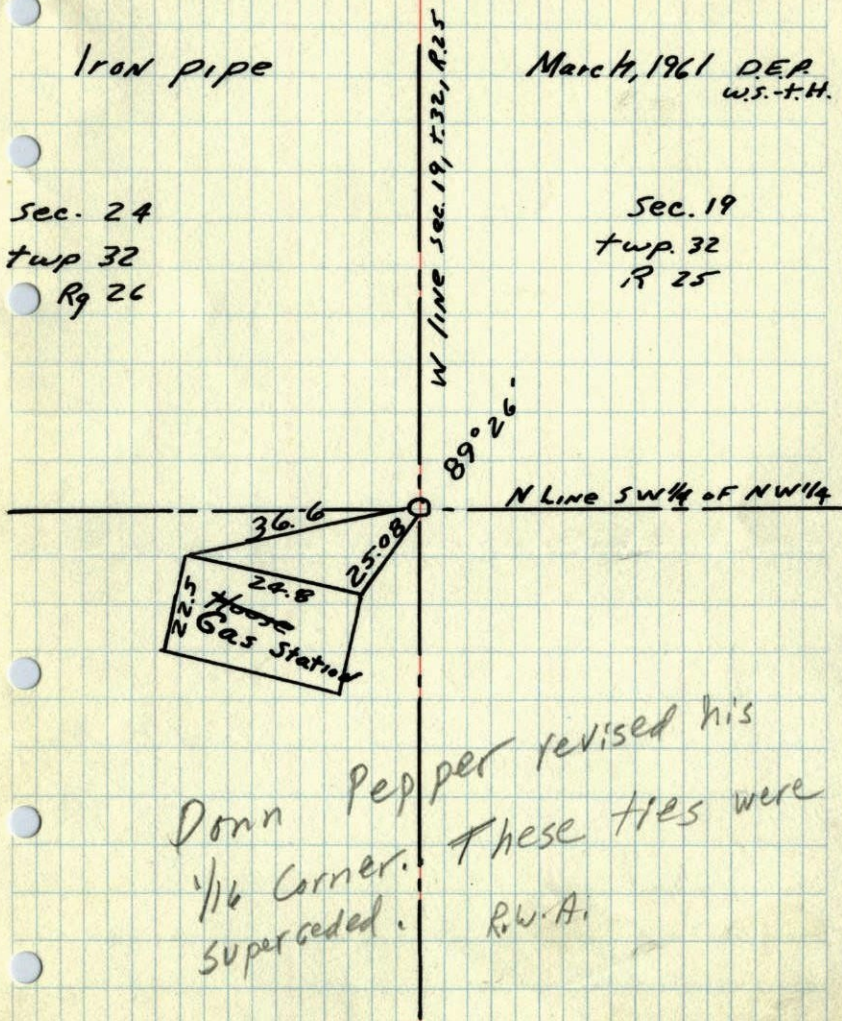 Iron pipe
March, 1961 D.E.P.
W.S.-t.H.
W line sec. 19, t.32, R.25
sec. 24
twp 32
Rg 26
sec. 19
twp. 32
R 25
89°26'
N Line SW1/4 of NW1/4
36.6
25.08
24.8
22.5
House
Gas Station
Donn Pepper revised his
1/16 Corner. These ties were
superceded. R.W.A.